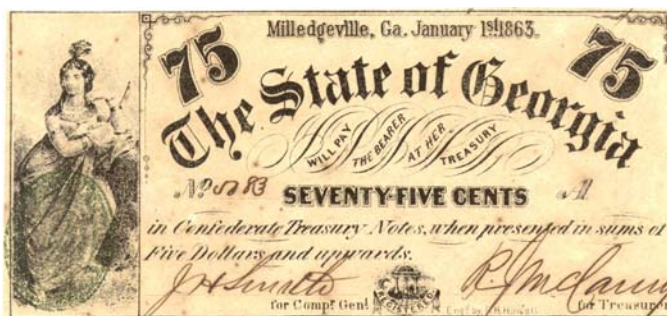 Milledgeville, Ga. January 1st 1863.
75 75
The State of Georgia
WILL PAY THE BEARER AT HER TREASURY
No. 83 A
SEVENTY-FIVE CENTS
in Confederate Treasury Notes, when presented in sums of
Five Dollars and upwards.
for Compt Genl. REGISTERED for Treasurer
Engd by R.H. Howell